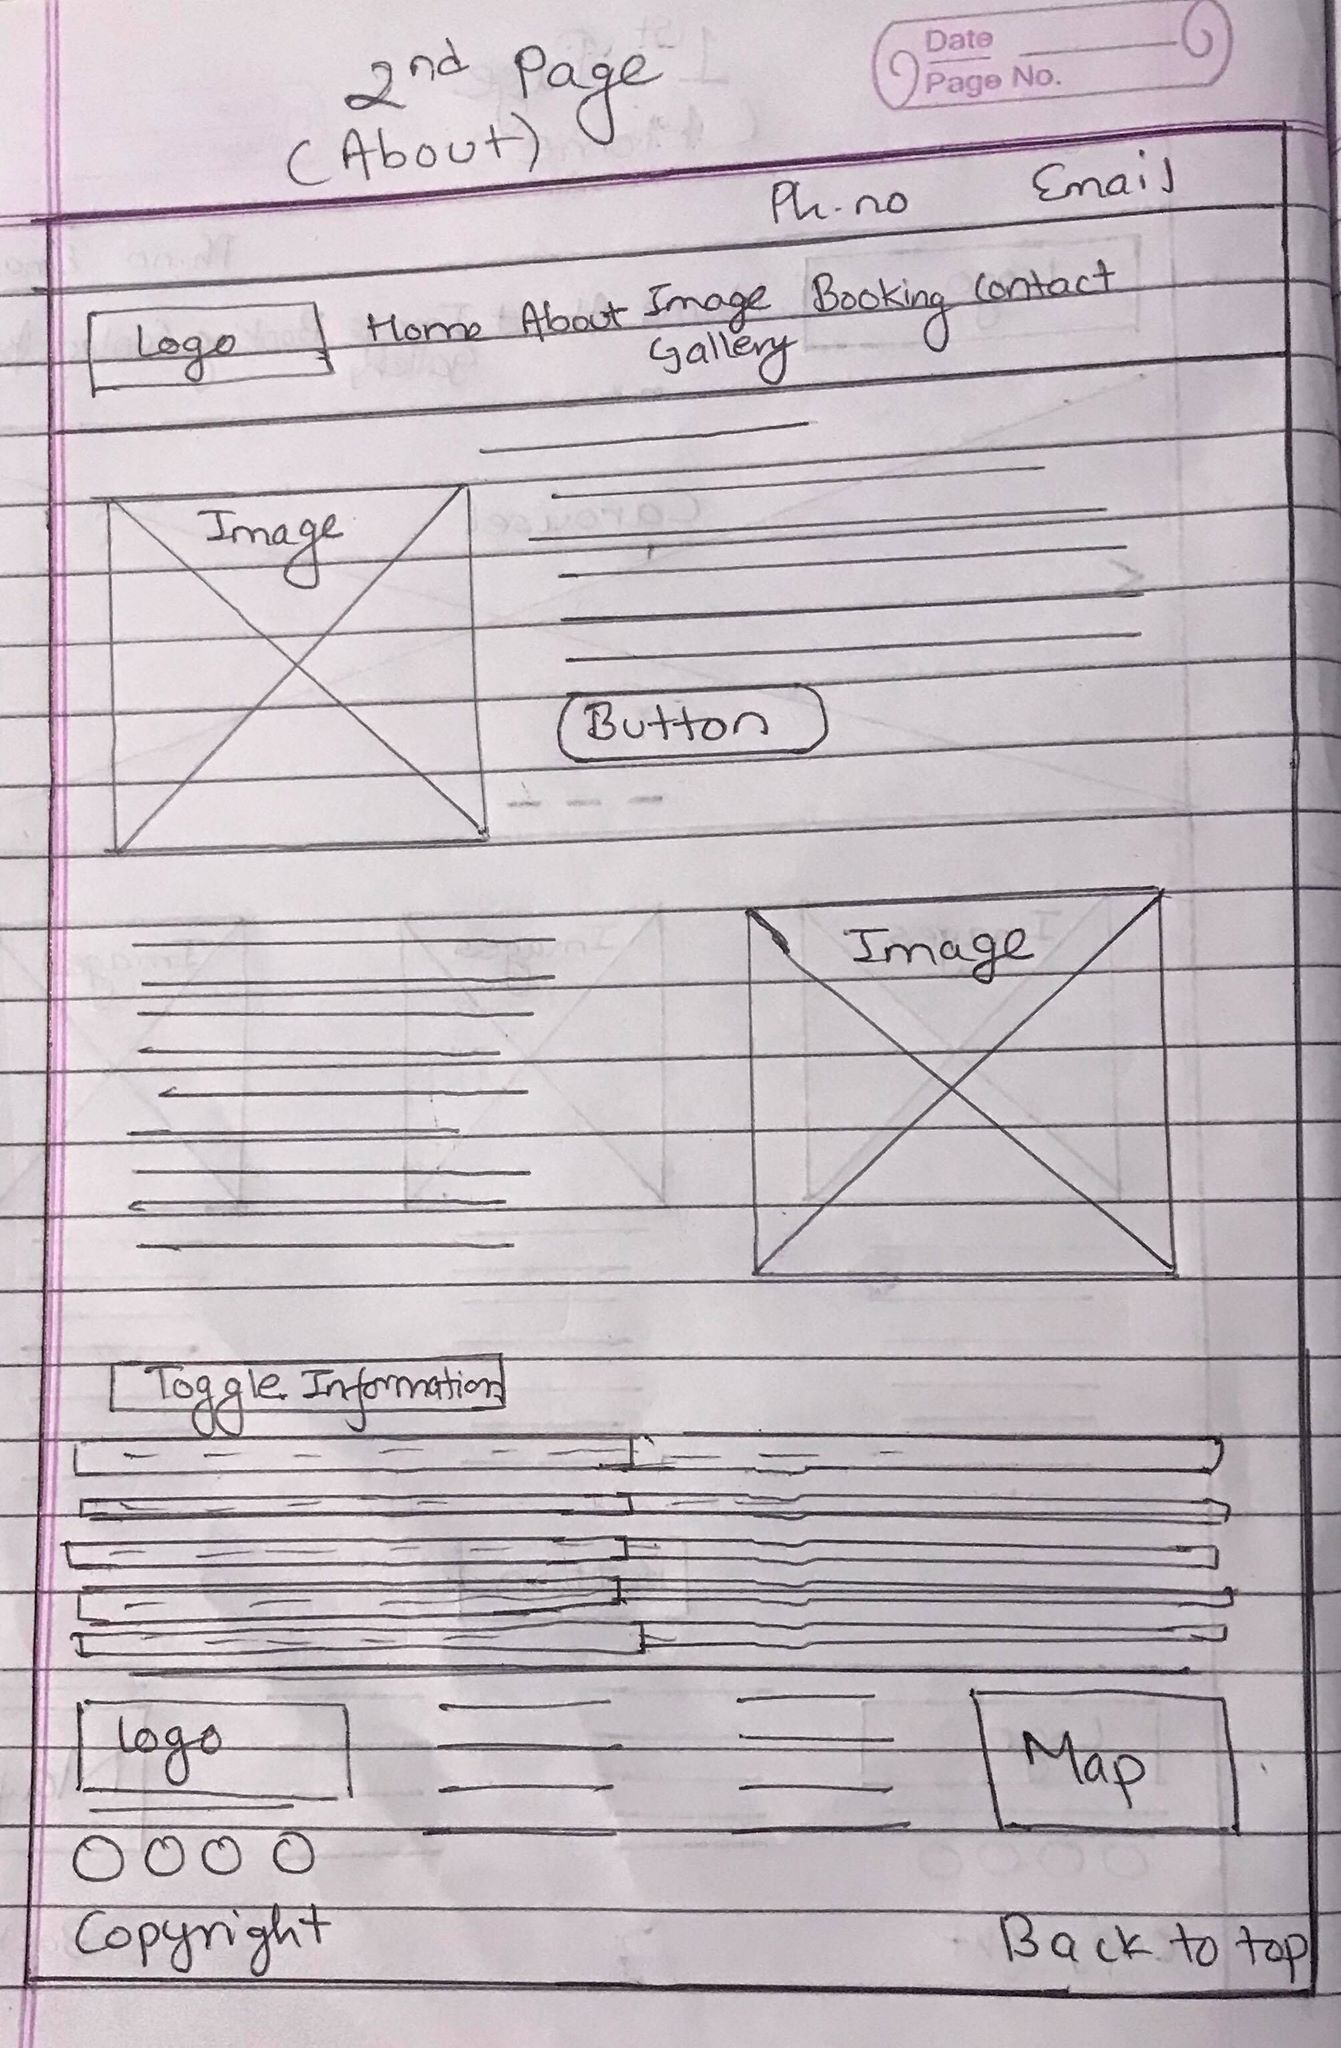 Date
Page No.
2nd Page
(About)
Ph.no Email
Logo Home About Image Gallery Booking Contact
Image
Button
Image
Toggle Information
Logo
Map
Copyright Back to top